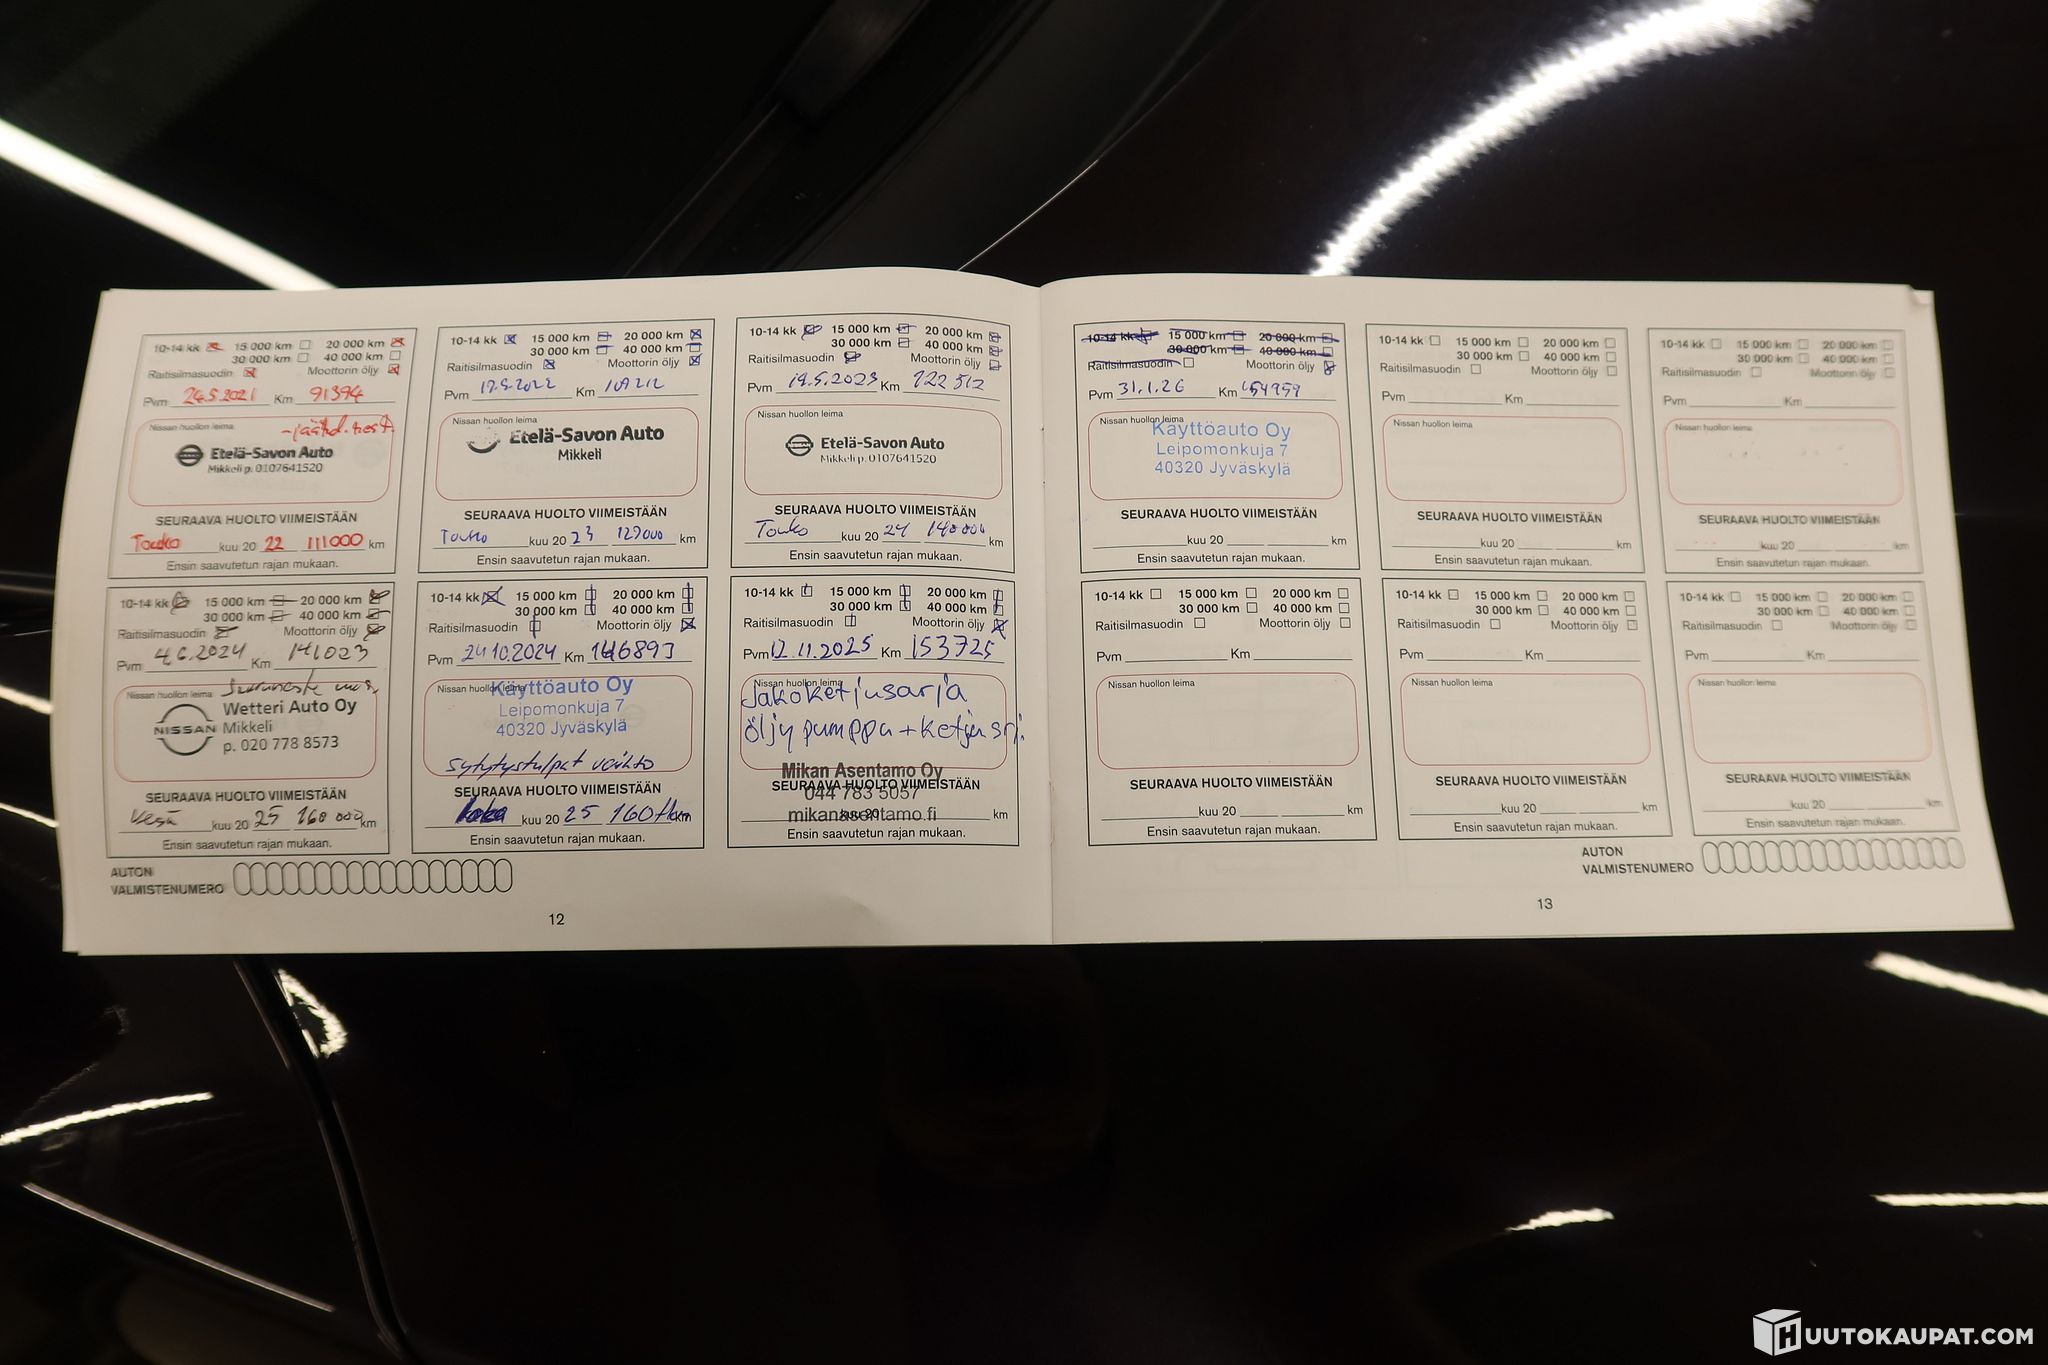 10-14 kk 15 000 km 20 000 km
30 000 km 40 000 km
Raitisilmasuodin Moottorin öljy
Pvm 24.5.2021 Km 91394
Nissan huollon leima
Etelä-Savon Auto
Mikkeli p. 0107641520
SEURAAVA HUOLTO VIIMEISTÄÄN
Touko kuu 20 22 111000 km
Ensin saavutetun rajan mukaan.
10-14 kk 15 000 km 20 000 km
30 000 km 40 000 km
Raitisilmasuodin Moottorin öljy
Pvm Km
Nissan huollon leima
Etelä-Savon Auto
Mikkeli
SEURAAVA HUOLTO VIIMEISTÄÄN
Touko kuu 20 23 km
Ensin saavutetun rajan mukaan.
10-14 kk 15 000 km 20 000 km
30 000 km 40 000 km
Raitisilmasuodin Moottorin öljy
Pvm 19.5.2023 Km 122512
Nissan huollon leima
NISSAN
Etelä-Savon Auto
Mikkeli p. 0107641520
SEURAAVA HUOLTO VIIMEISTÄÄN
Touko kuu 20 24 140000 km
Ensin saavutetun rajan mukaan.
10-14 kk 15 000 km 20 000 km
30 000 km 40 000 km
Raitisilmasuodin Moottorin öljy
Pvm 4.6.2024 Km 141023
Nissan huollon leima
Wetteri Auto Oy
NISSAN Mikkeli
p. 020 778 8573
SEURAAVA HUOLTO VIIMEISTÄÄN
Kesä kuu 20 25 160 000 km
Ensin saavutetun rajan mukaan.
10-14 kk 15 000 km 20 000 km
30 000 km 40 000 km
Raitisilmasuodin Moottorin öljy
Pvm 24.10.2024 Km 146893
Nissan huollon leima
Käyttöauto Oy
Leipomonkuja 7
40320 Jyväskylä
sytytystulpat vaihto
SEURAAVA HUOLTO VIIMEISTÄÄN
kuu 20 25 km
Ensin saavutetun rajan mukaan.
10-14 kk 15 000 km 20 000 km
30 000 km 40 000 km
Raitisilmasuodin Moottorin öljy
Pvm 12.11.2025 Km 153725
Nissan huollon leima
Jakoketjusarja
öljy pumppu + ketju srj.
Mikan Asentamo Oy
SEURAAVA HUOLTO VIIMEISTÄÄN
044 783 5057
kuu 20 km
mikanasentamo.fi
Ensin saavutetun rajan mukaan.
AUTON
VALMISTENUMERO
12
10-14 kk 15 000 km 20 000 km
30 000 km 40 000 km
Raitisilmasuodin Moottorin öljy
Pvm 31.1.26 Km
Nissan huollon leima
Käyttöauto Oy
Leipomonkuja 7
40320 Jyväskylä
SEURAAVA HUOLTO VIIMEISTÄÄN
kuu 20 km
Ensin saavutetun rajan mukaan.
10-14 kk 15 000 km 20 000 km
30 000 km 40 000 km
Raitisilmasuodin Moottorin öljy
Pvm Km
Nissan huollon leima
SEURAAVA HUOLTO VIIMEISTÄÄN
kuu 20 km
Ensin saavutetun rajan mukaan.
10-14 kk 15 000 km 20 000 km
30 000 km 40 000 km
Raitisilmasuodin Moottorin öljy
Pvm Km
Nissan huollon leima
SEURAAVA HUOLTO VIIMEISTÄÄN
kuu 20 km
Ensin saavutetun rajan mukaan.
10-14 kk 15 000 km 20 000 km
30 000 km 40 000 km
Raitisilmasuodin Moottorin öljy
Pvm Km
Nissan huollon leima
SEURAAVA HUOLTO VIIMEISTÄÄN
kuu 20 km
Ensin saavutetun rajan mukaan.
10-14 kk 15 000 km 20 000 km
30 000 km 40 000 km
Raitisilmasuodin Moottorin öljy
Pvm Km
Nissan huollon leima
SEURAAVA HUOLTO VIIMEISTÄÄN
kuu 20 km
Ensin saavutetun rajan mukaan.
10-14 kk 15 000 km 20 000 km
30 000 km 40 000 km
Raitisilmasuodin Moottorin öljy
Pvm Km
Nissan huollon leima
SEURAAVA HUOLTO VIIMEISTÄÄN
kuu 20 km
Ensin saavutetun rajan mukaan.
AUTON
VALMISTENUMERO
13
HUUTOKAUPAT.COM